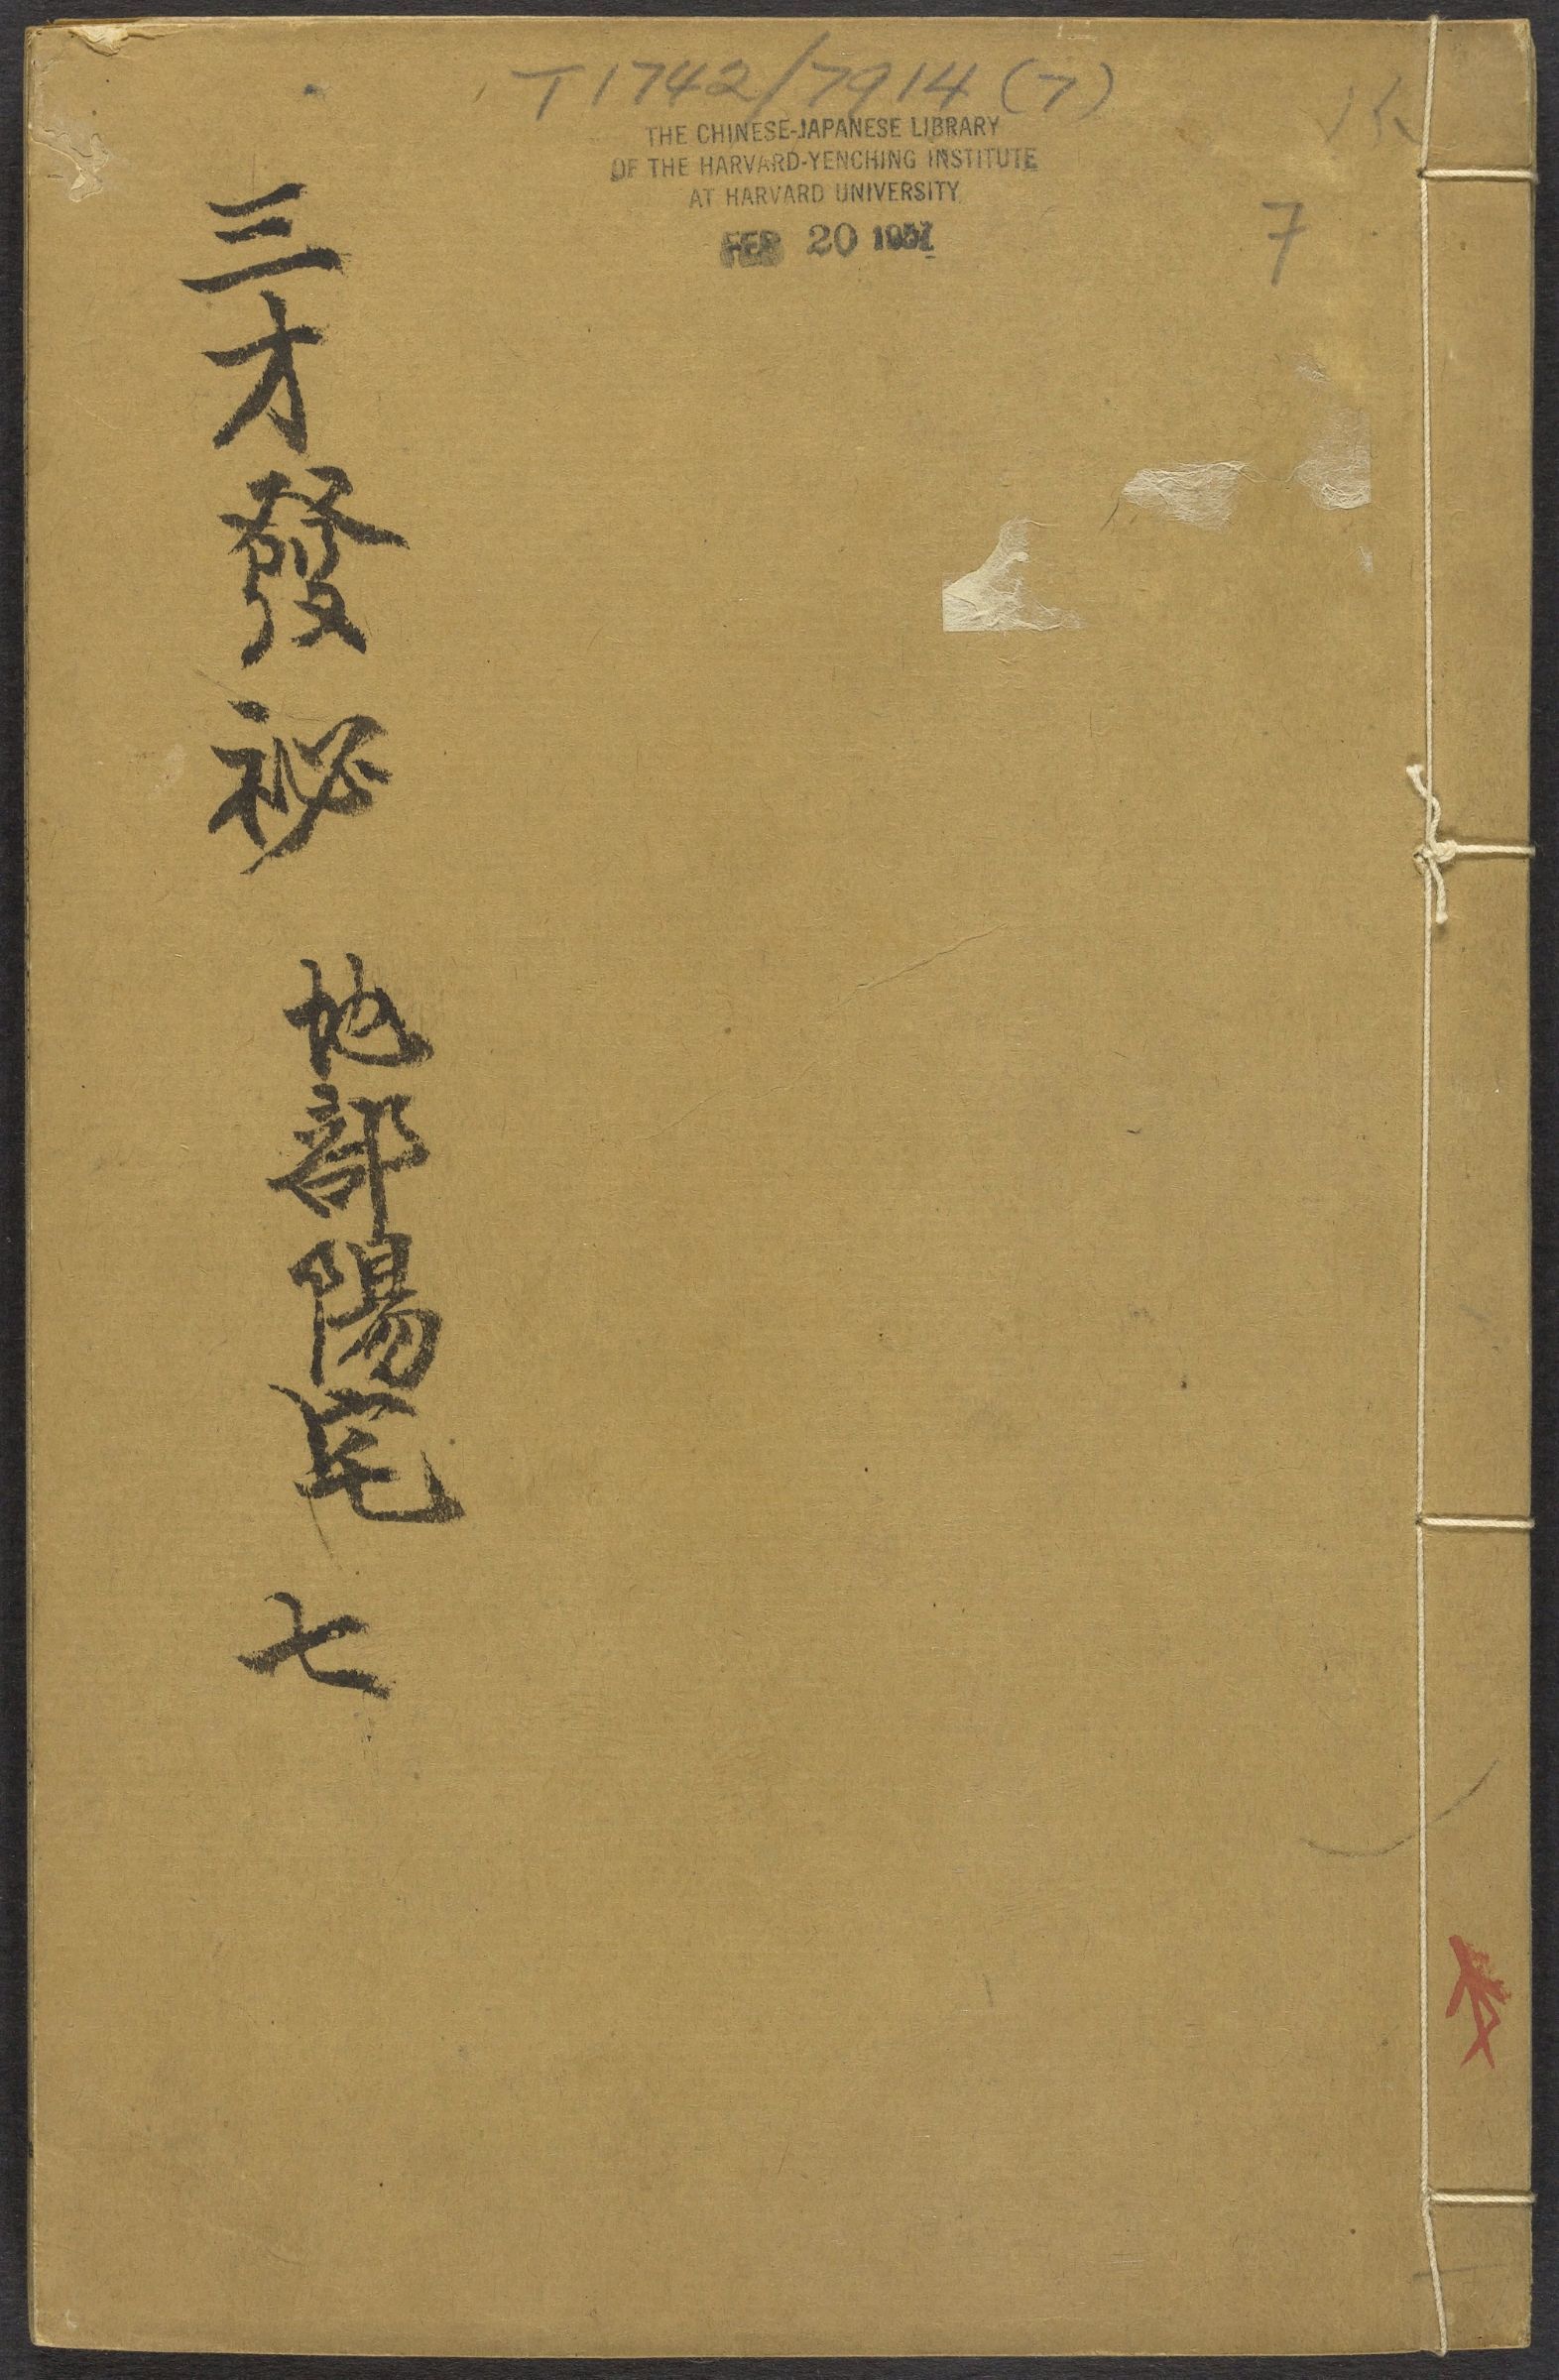 T1742/7914(7)
THE CHINESE-JAPANESE LIBRARY
OF THE HARVARD-YENCHING INSTITUTE
AT HARVARD UNIVERSITY
FEB 20 1957
7
三才發祕 地部陽宅 七